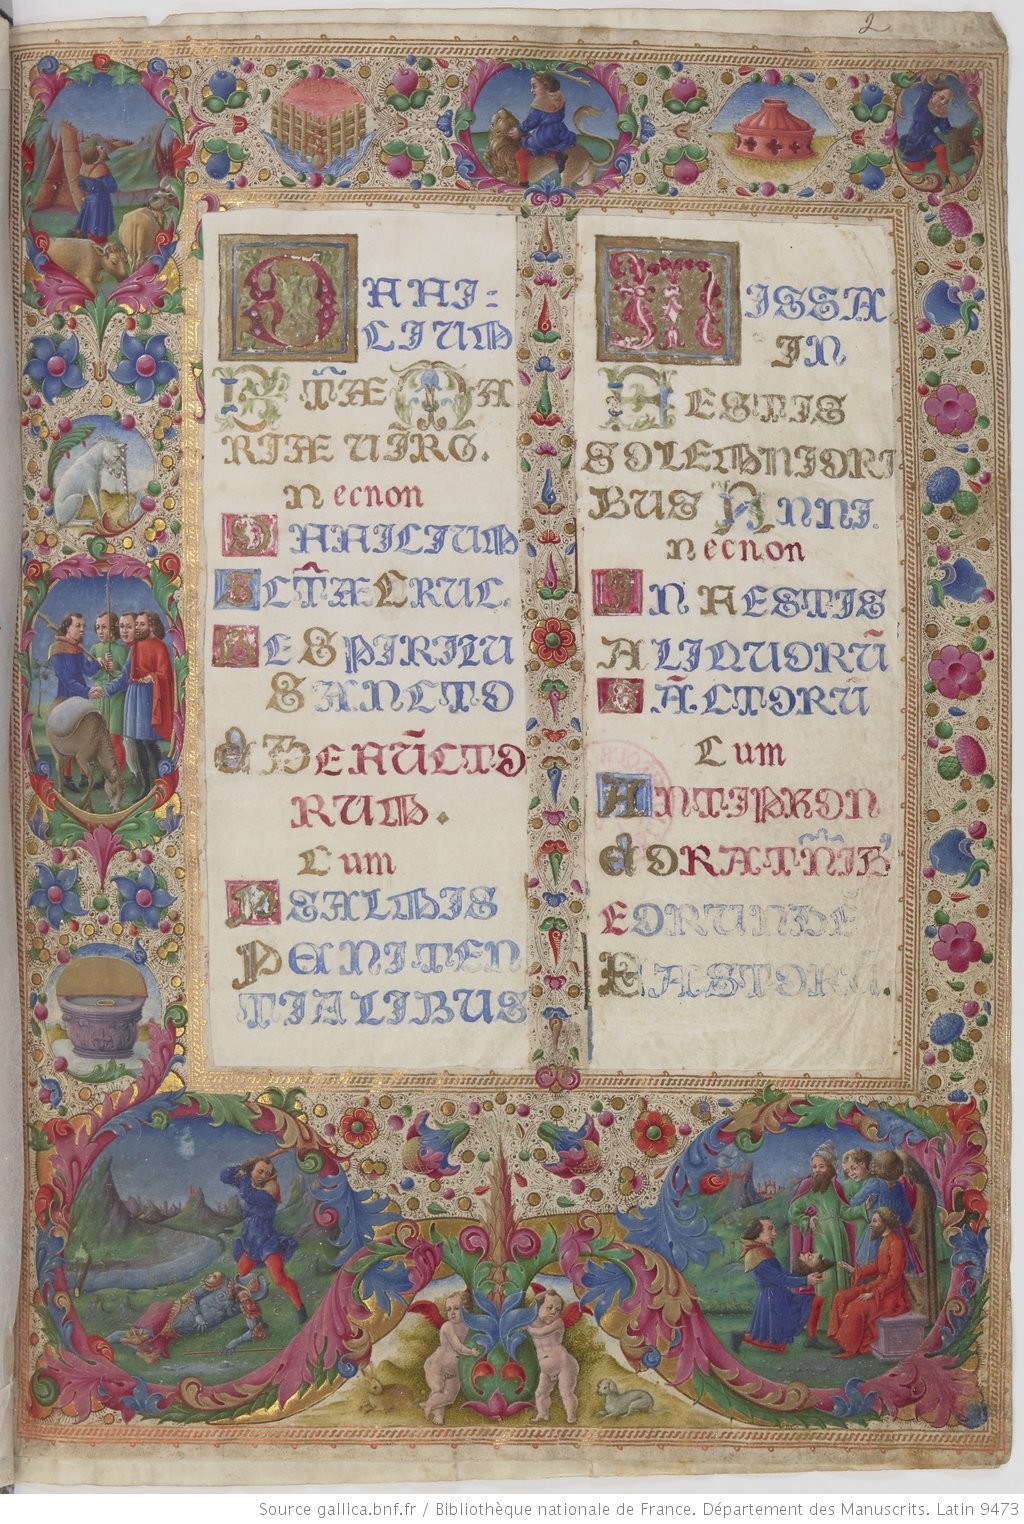 OFFI=
CIUM
BT̃Æ MA
RIÆ VIRG.
Necnon
OFFICIUM
SCT̃Æ CRUC.
DE SPIRITU
SANCTO
& DEFŨCTO
RUM.
Cum
PSALMIS
PŒNITEN
TIALIBUS
MISSA
IN
FESTIS
SOLEMNIORI
BUS ANNI.
Necnon
IN FESTIS
ALIQUORŨ
SÃCTORŨ
Cum
ANTIPHON
& ORATÑIB'
EORUNDẼ
2
Source gallica.bnf.fr / Bibliothèque nationale de France. Département des Manuscrits. Latin 9473